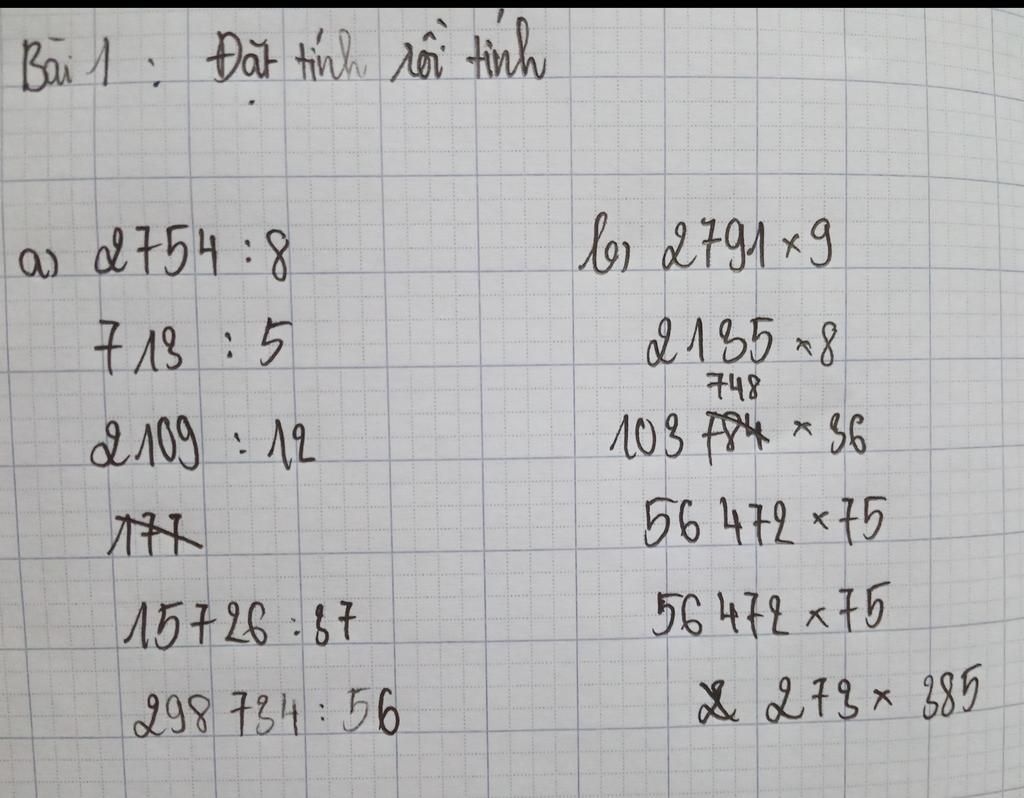 Bài 1 : Đặt tính rồi tính
a) 2754 : 8
713 : 5
2109 : 12
177
15726 : 37
298 734 : 56
b) 2791 × 9
2135 × 8
748
103 784 × 36
56 472 × 75
56 472 × 75
273 × 385